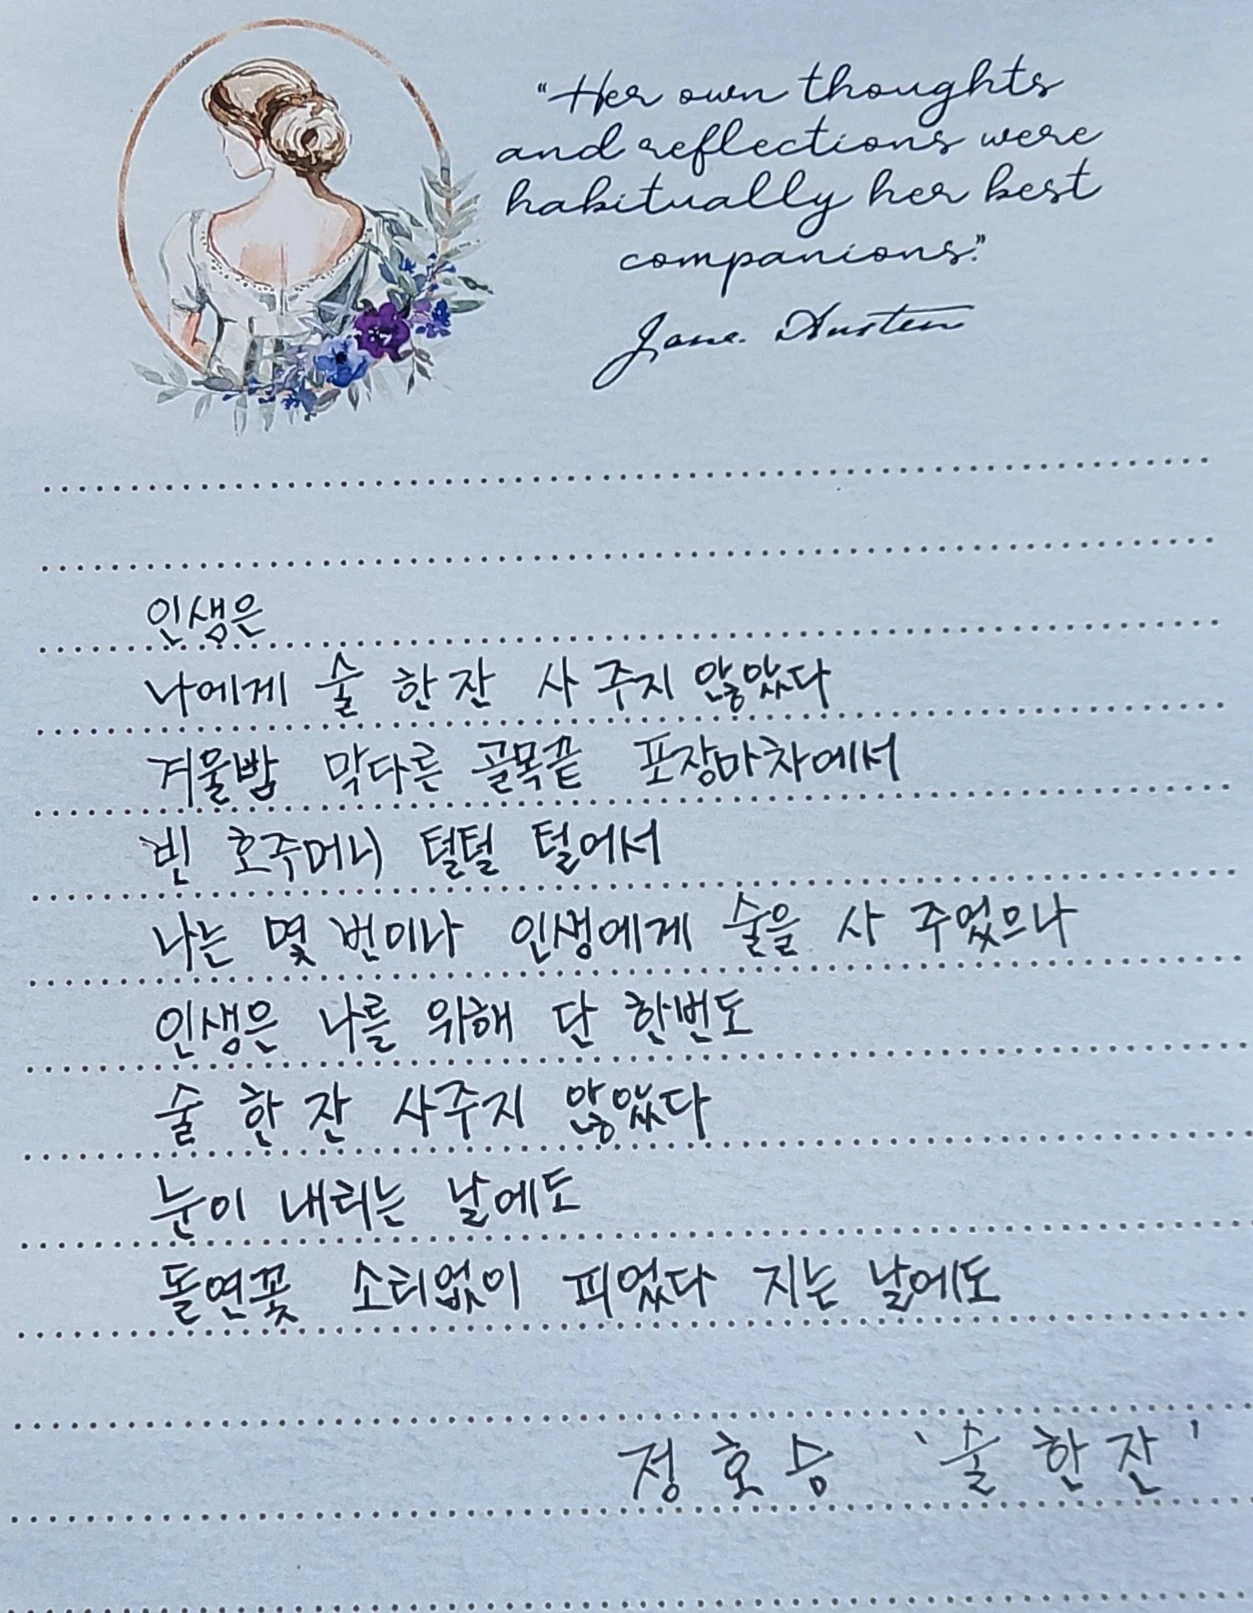 "Her own thoughts
and reflections were
habitually her best
companions."
Jane Austen
인생은
나에게 술 한 잔 사 주지 않았다
겨울밤 막다른 골목끝 포장마차에서
빈 호주머니 털털 털어서
나는 몇 번이나 인생에게 술을 사 주었으나
인생은 나를 위해 단 한번도
술 한 잔 사주지 않았다
눈이 내리는 날에도
돌연꽃 소리없이 피었다 지는 날에도
정호승 '술 한 잔'